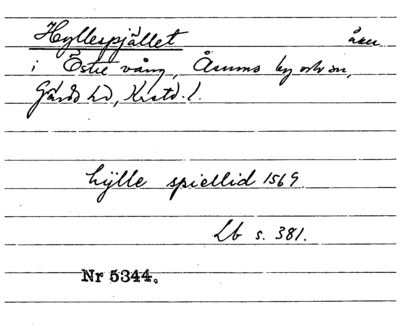 Hyllespjället åker
i Östre vång, Åsums by och sn,
Gärds hd, Krstd. l.
hÿlle spiellid 1569
Lb s. 381.
Nr 5344.